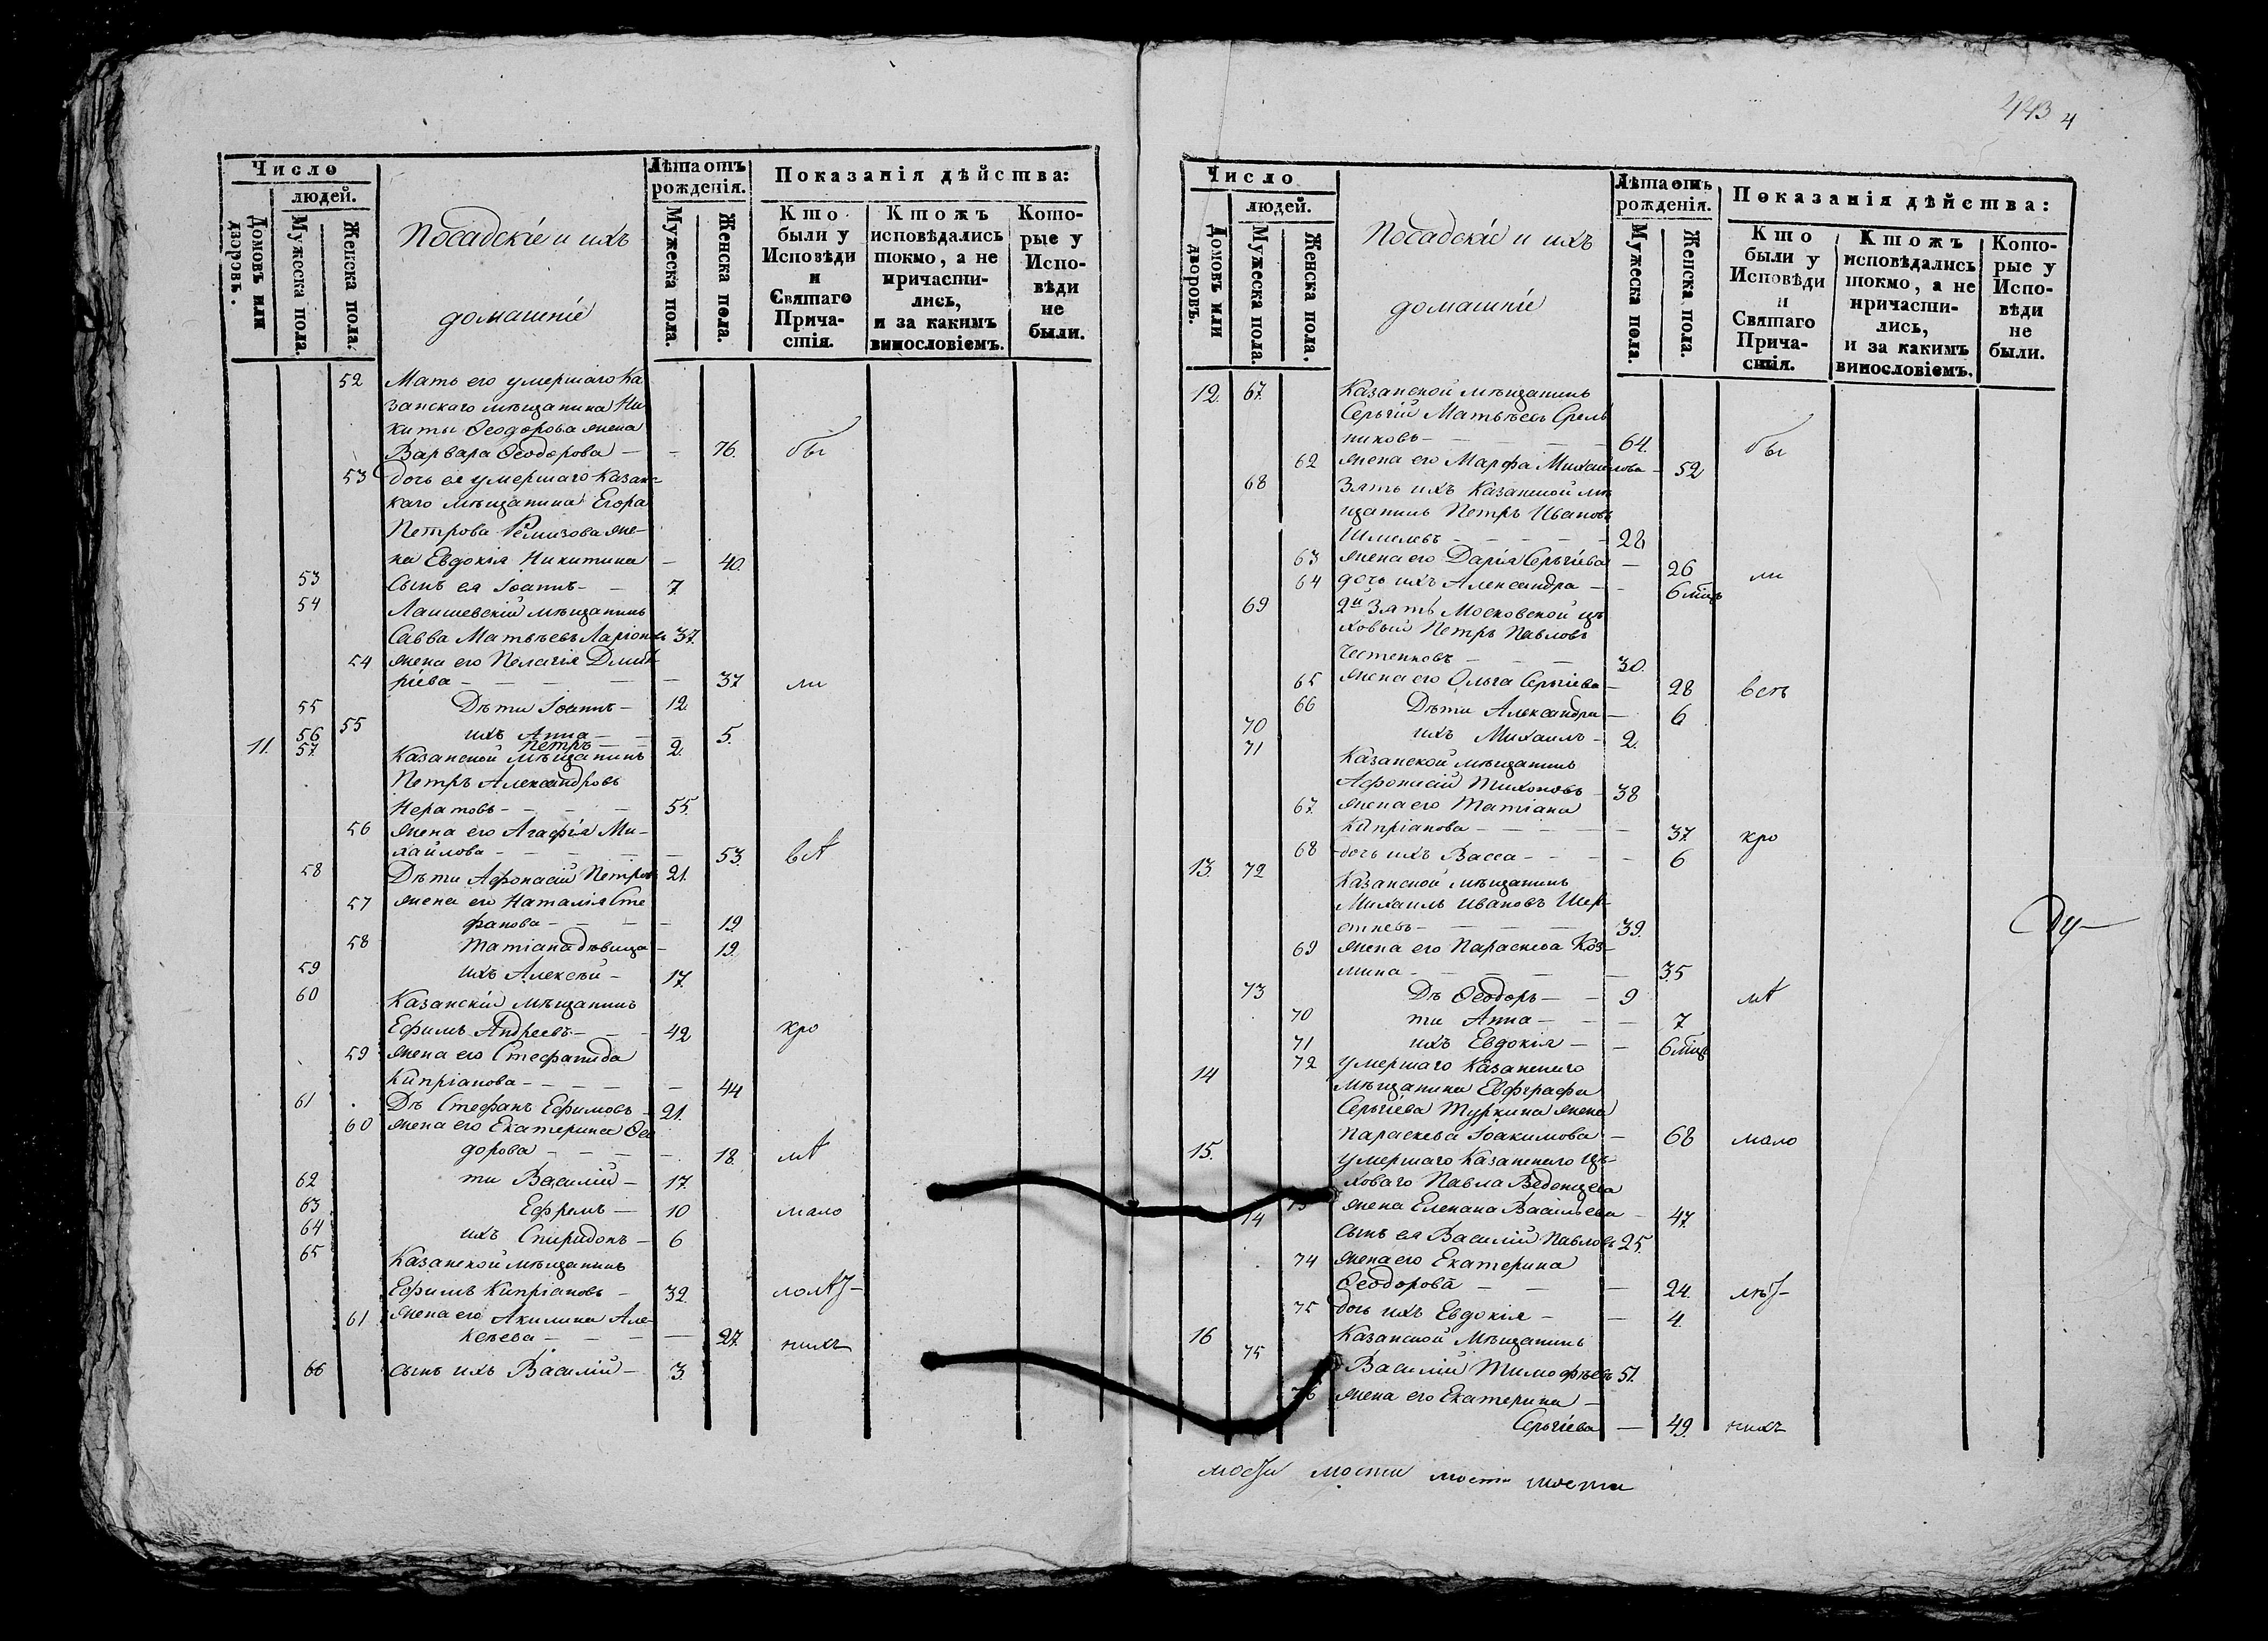 443 4
Число
людей.
Домовъ или дворовъ.
Мужеска пола.
Женска пола.
Посадскіе и ихъ
домашніе
Лѣта отъ рожденія.
Мужеска пола.
Женска пола.
Показанія дѣйства:
Кто были у Исповѣди и Святаго Причастія.
Ктожъ исповѣдались токмо, а не причастились, и за какимъ винословіемъ.
Которые у Исповѣди не были.
52 Мать его умершаго Ка
занскаго мѣщанина Ни
киты Ѳеодорова жена
Варвара Ѳеодорова — — 76. бы
53 дочь ея умершаго Казанс
каго мѣщанина Егора
Петрова Ремизова же-
на Евдокія Никитина — 40.
53 Сынъ ея Іоаннъ — 7
54 Лаишевскій мѣщанинъ
Савва Матвѣевъ Ларіоновъ 37.
54 жена его Пелагія Дмит-
ріева — — — 37 ли
55 Дѣти Іоаннъ — 12.
55 ихъ Анна — — 5.
56 Петръ — — 2.
11. 57. Казанской мѣщанинъ
Петръ Александровъ
Нератовъ — — — 55.
56 жена его Агафія Ми-
хайлова — — — 53. всѣ
58 Дѣти Афонасій Петровъ 21.
57 жена его Наталія Сте
фанова — — — 19.
58 Татіана дѣвица — 19.
59 ихъ Алексѣй — 17.
60 Казанскій мѣщанинъ
Ефимъ Андреевъ — — 42 кро
59 жена его Стефанида
Кипріанова — — — 44
61 Дѣ Стефанъ Ефимовъ — 21.
60 жена его Екатерина Ѳео
дорова — — — 18. мѣ
62 ти Василій — 17.
63 Ефремъ — 10 мало
64 ихъ Спиридонъ — 6
65 Казанской мѣщанинъ
Ефимъ Кипріановъ — 32.
61 жена его Акилина Але-
ксѣева — — — 27. нихъ
66 сынъ ихъ Василій — 3.
Число
людей.
Домовъ или дворовъ.
Мужеска пола.
Женска пола.
Посадскіе и ихъ
домашніе
Лѣта отъ рожденія.
Мужеска пола.
Женска пола.
Показанія дѣйства:
Кто были у Исповѣди и Святаго Причастія.
Ктожъ исповѣдались токмо, а не причастились, и за какимъ винословіемъ.
Которые у Исповѣди не были.
12. 67. Казанской мѣщанинъ
Сергій Матвѣевъ Срель
никовъ — — — 64. бы
62 жена его Марфа Михайлова — 52
68 Зять ихъ Казанской мѣ
щанинъ Петръ Ивановъ
Шмелевъ — — — 28
63 жена его Дарія Сергіева — 26 ли
64 дочь ихъ Александра — — 6 мѣцъ
69 2й Зять Московской це
ховый Петръ Павловъ
Честенковъ — — — 30.
65 жена его Ольга Сергіева — 28 всѣ
66 Дѣти Александра — 6
70 ихъ Михаилъ — 2.
71 Казанской мѣщанинъ
Афонасій Тихоновъ — 38
67. жена его Татіана
Кипріанова — — — 37. кро
68 дочь ихъ Васса — — — 6
13. 72 Казанской мѣщанинъ
Михаилъ Ивановъ Шер-
стневъ — — — 39.
69 жена его Параскева Коз-
мина — — — 35
73 Дѣ Ѳеодоръ — — 9 мѣ
70 ти Анна — — — 7
71 ихъ Евдокія — — 6 мѣцъ
14 72 умершаго Казанскаго
мѣщанина Евфграфа
Сергіева Туркина жена
Параскева Іоакимова — 68 мало
15. умершаго Казанскаго це-
ховаго Павла Веденцева
73 жена Елена Васильева — 47.
74 сынъ ея Василій Павловъ 25.
74 жена его Екатерина
Ѳеодорова — — 24.
75 дочь ихъ Евдокія — — 4.
16 75 Казанской Мѣщанинъ
Василій Тимофѣевъ 51.
76 жена его Екатерина —
Сергіева — 49. нихъ
мости мости мости мости